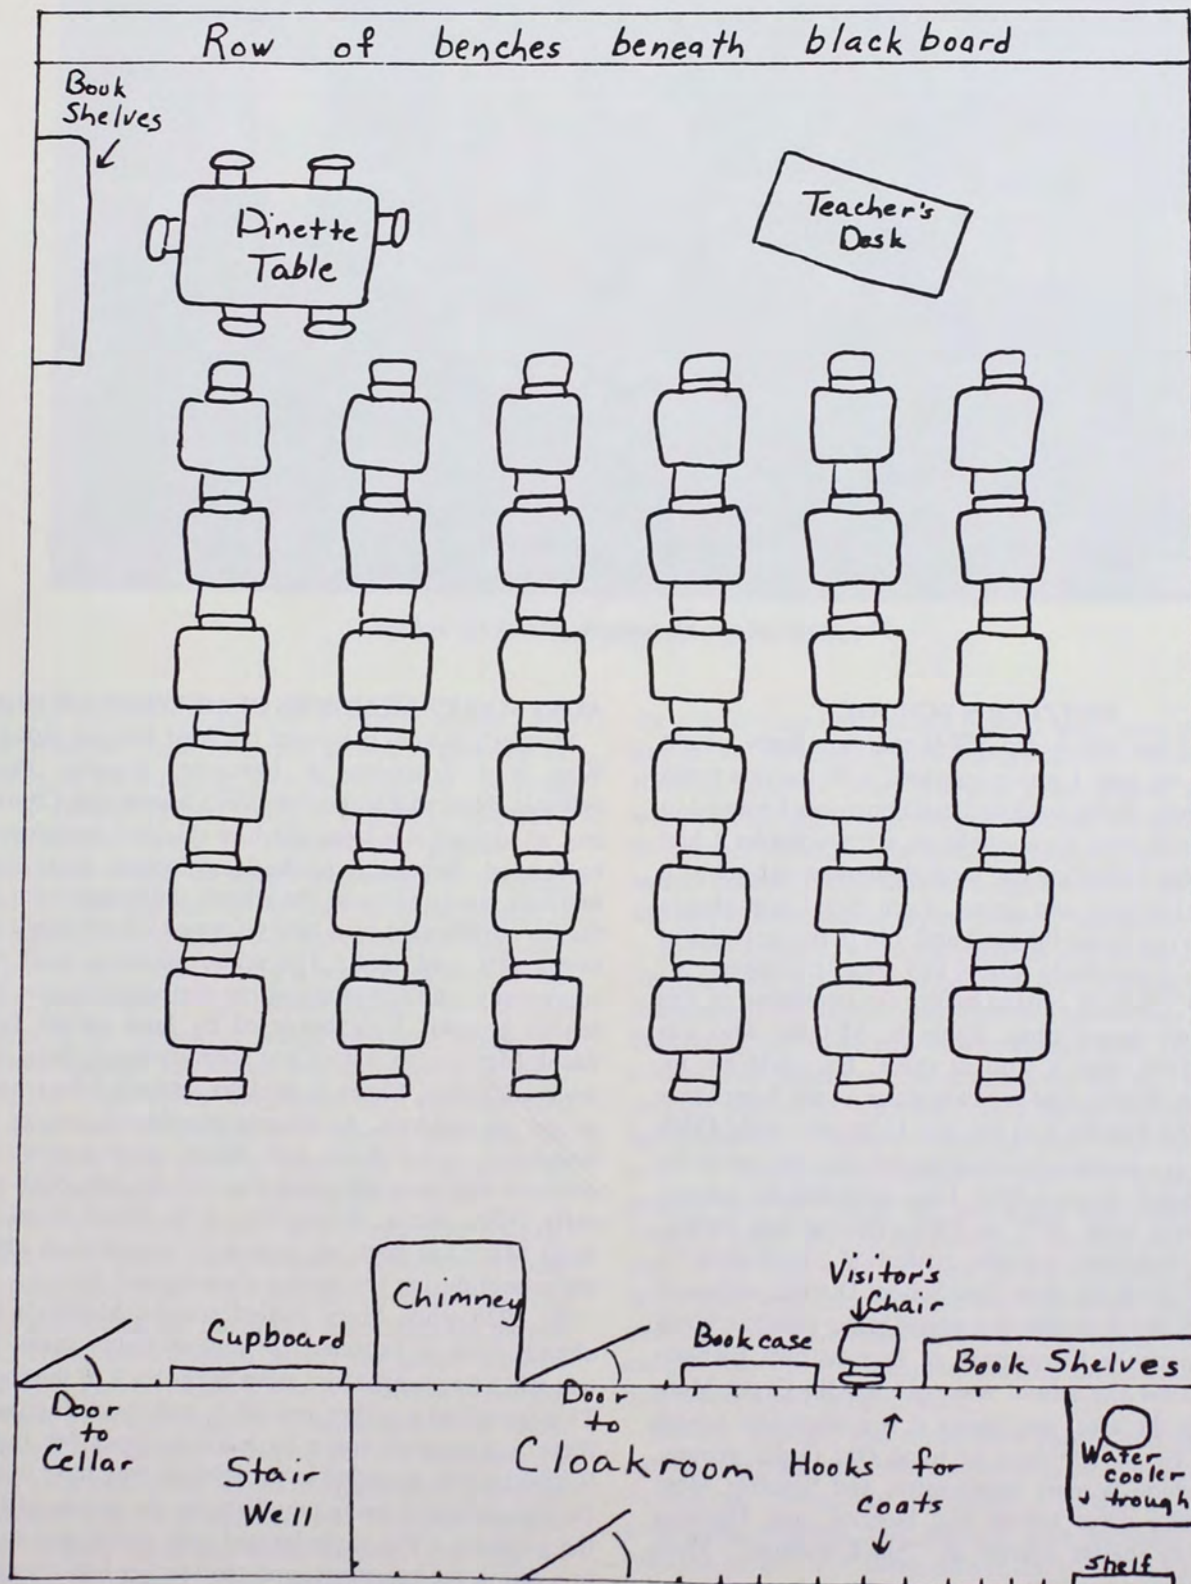 Row of benches beneath black board
Book
Shelves
Dinette
Table
Teacher's
Desk
Visitor's
Chair
Chimney
Cupboard
Bookcase
Book Shelves
Door
to
Cellar
Stair
Well
Door
to
Cloakroom
Hooks for
coats
Water
cooler
+ trough
Shelf